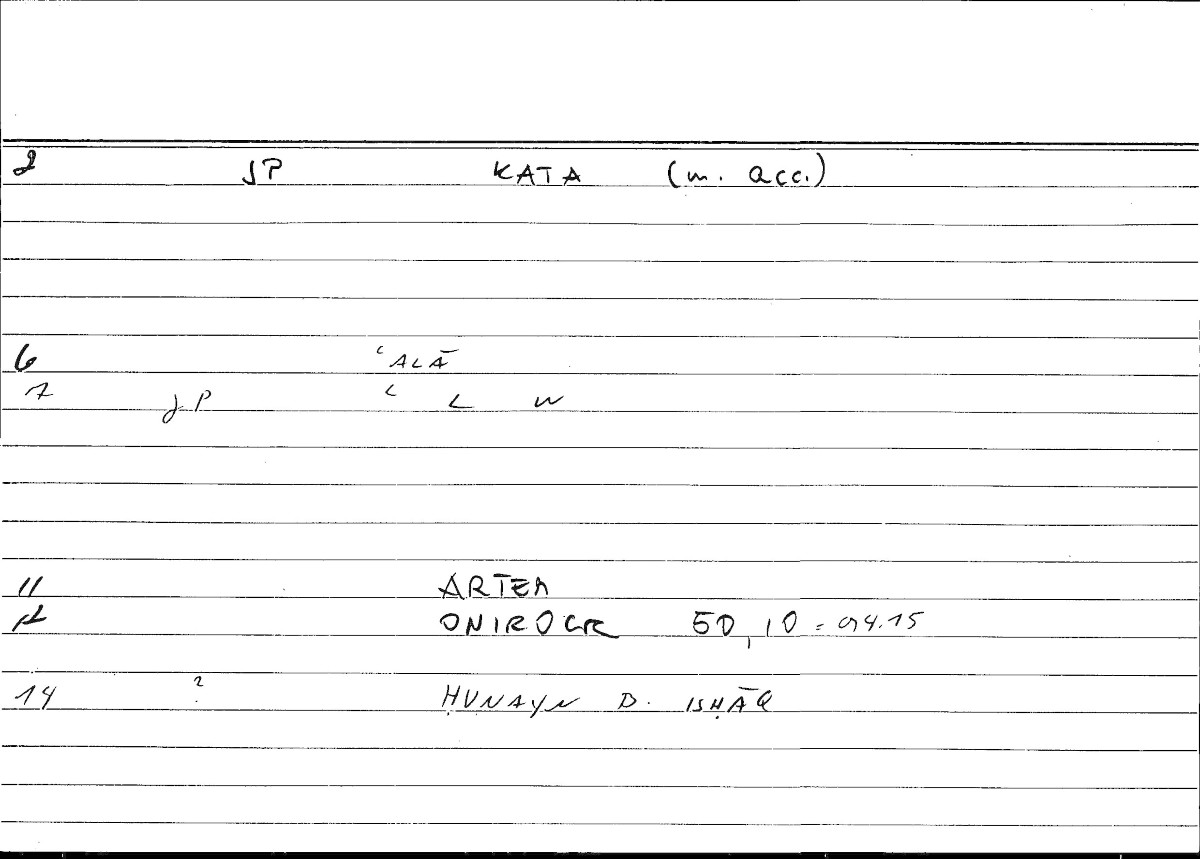 2 JP KATA (m. acc.)
6 ʿALĀ
7 JP ʿ L W
11 ARTEM
12 ONIROCR 50,10 = 94.15
14 ? ḤUNAYN B. ISḤĀQ